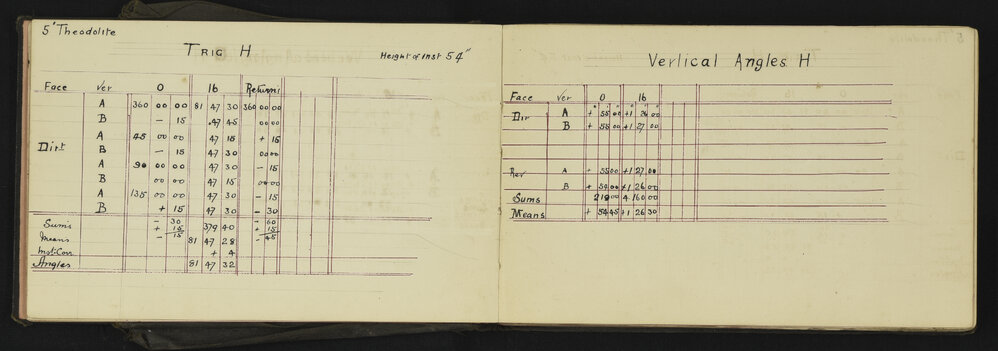 5" Theodolite
TRIG H
Height of Inst 54"
Face Ver O 16 Returns
A 360 00 00 81 47 30 360 00 00
B — 15 47 45 00 00
A 45 00 00 47 15 + 15
Dirt B — 15 47 30 00 00
A 90 00 00 47 30 — 15
B 00 00 47 15 00 00
A 135 00 00 47 30 — 15
B + 15 47 30 — 30
Sums — 30 379 40 — 60
+ 15 + 15
Means — 15 81 47 28 — 45
Inst Corr + 4
Angles 81 47 32
Vertical Angles H
Face Ver O 16
Dir A + 55 00 +1 26 00
B + 55 00 +1 27 00
Rev A + 55 00 +1 27 00
B + 54 00 +1 26 00
Sums 219 00 4 16 00
Means + 54 45 +1 26 30